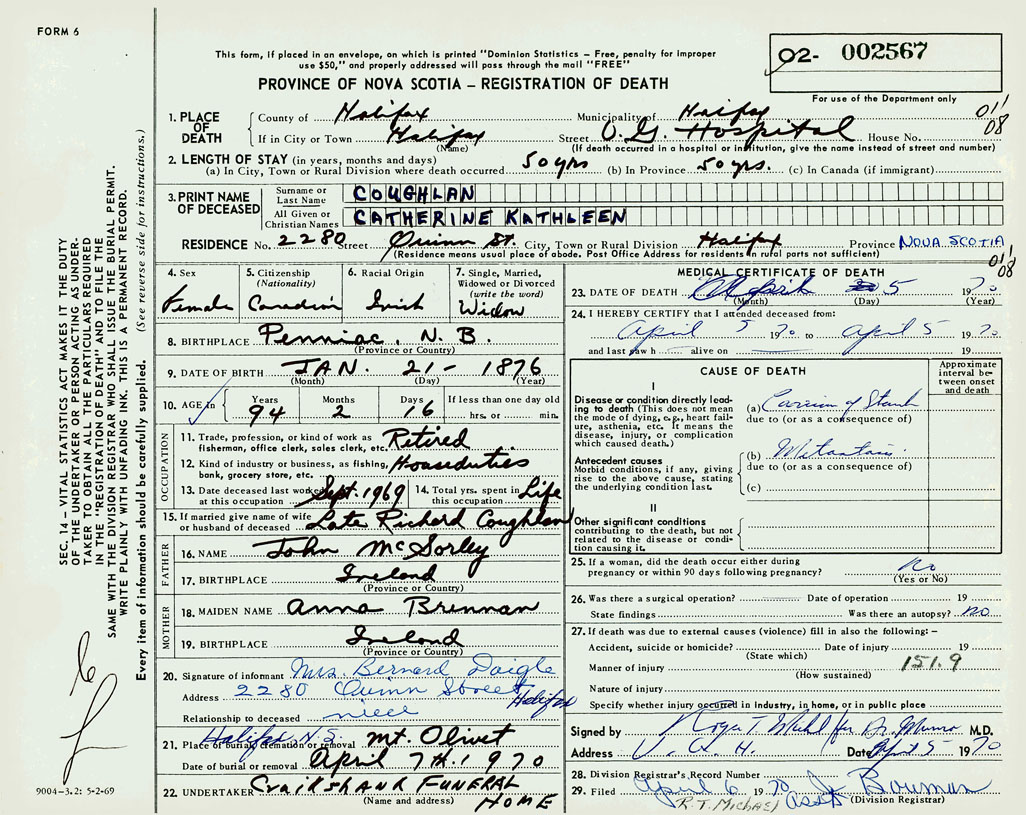 FORM 6
This form, if placed in an envelope, on which is printed "Dominion Statistics – Free, penalty for improper
use $50," and properly addressed will pass through the mail "FREE"
02- 002567
PROVINCE OF NOVA SCOTIA – REGISTRATION OF DEATH
For use of the Department only
1. PLACE OF DEATH
County of Halifax Municipality of Halifax 01'
If in City or Town Halifax Street V.G. Hospital House No. 08
(Name) (If death occurred in a hospital or institution, give the name instead of street and number)
2. LENGTH OF STAY (in years, months and days)
(a) In City, Town or Rural Division where death occurred 50 yrs (b) In Province 50 yrs. (c) In Canada (if immigrant)
3. PRINT NAME OF DECEASED
Surname or Last Name COUGHLAN
All Given or Christian Names CATHERINE KATHLEEN
RESIDENCE No. 2280 Street Quinn St. City, Town or Rural Division Halifax Province NOVA SCOTIA
(Residence means usual place of abode. Post Office Address for residents in rural parts not sufficient)
01'
08
4. Sex
Female
5. Citizenship
(Nationality)
Canadian
6. Racial Origin
Irish
7. Single, Married,
Widowed or Divorced
(write the word)
Widow
8. BIRTHPLACE Penniac, N.B.
(Province or Country)
9. DATE OF BIRTH JAN. 21 - 1876
(Month) (Day) (Year)
10. AGE in Years 94 Months 2 Days 16 If less than one day old
hrs. or min.
OCCUPATION
11. Trade, profession, or kind of work as Retired
fisherman, office clerk, sales clerk, etc.
12. Kind of industry or business, as fishing, Houseduties
bank, grocery store, etc.
13. Date deceased last worked at this occupation Sept. 1969 14. Total yrs. spent in this occupation Life
15. If married give name of wife
or husband of deceased Late Richard Coughlan
FATHER
16. NAME John McSorley
17. BIRTHPLACE Ireland
(Province or Country)
MOTHER
18. MAIDEN NAME Anna Brennan
19. BIRTHPLACE Ireland
(Province or Country)
20. Signature of informant Mrs. Bernard Daigle
Address 2280 Quinn Street Halifax
Relationship to deceased niece
Halifax, N.S.
21. Place of burial, cremation or removal Mt. Olivet
Date of burial or removal April 7th. 1970
22. UNDERTAKER Cruikshank FUNERAL
(Name and address) HOME
MEDICAL CERTIFICATE OF DEATH
23. DATE OF DEATH April 5 1970
(Month) (Day) (Year)
24. I HEREBY CERTIFY that I attended deceased from:
April 5 1970 to April 5 1970
and last saw h alive on 19
CAUSE OF DEATH
Approximate interval between onset and death
I
Disease or condition directly leading to death (This does not mean the mode of dying, e.g., heart failure, asthenia, etc. It means the disease, injury, or complication which caused death.)
(a) of
due to (or as a consequence of)
Antecedent causes
Morbid conditions, if any, giving rise to the above cause, stating the underlying condition last.
(b)
due to (or as a consequence of)
(c)
II
Other significant conditions
contributing to the death, but not related to the disease or condition causing it.
25. If a woman, did the death occur either during
pregnancy or within 90 days following pregnancy? no
(Yes or No)
26. Was there a surgical operation? Date of operation 19
State findings Was there an autopsy? no
27. If death was due to external causes (violence) fill in also the following: –
Accident, suicide or homicide? Date of injury 19
(State which)
151.9
Manner of injury
(How sustained)
Nature of injury
Specify whether injury occurred in industry, in home, or in public place
Signed by for Dr. Munro M.D.
Address V.G.H. Date April 5 1970
28. Division Registrar's Record Number
29. Filed April 6 1970 J. Bowman
R.T. Michael Asst (Division Registrar)
SEC. 14 – VITAL STATISTICS ACT MAKES IT THE DUTY
OF THE UNDERTAKER OR PERSON ACTING AS UNDERTAKER
TO OBTAIN ALL THE PARTICULARS REQUIRED
IN THE "REGISTRATION OF DEATH" AND TO FILE THE
SAME WITH THE DIVISION REGISTRAR WHO SHALL ISSUE THE BURIAL PERMIT.
WRITE PLAINLY WITH UNFADING INK. THIS IS A PERMANENT RECORD.
Every item of information should be carefully supplied. (See reverse side for instructions.)
9004-3.2: 5-2-69